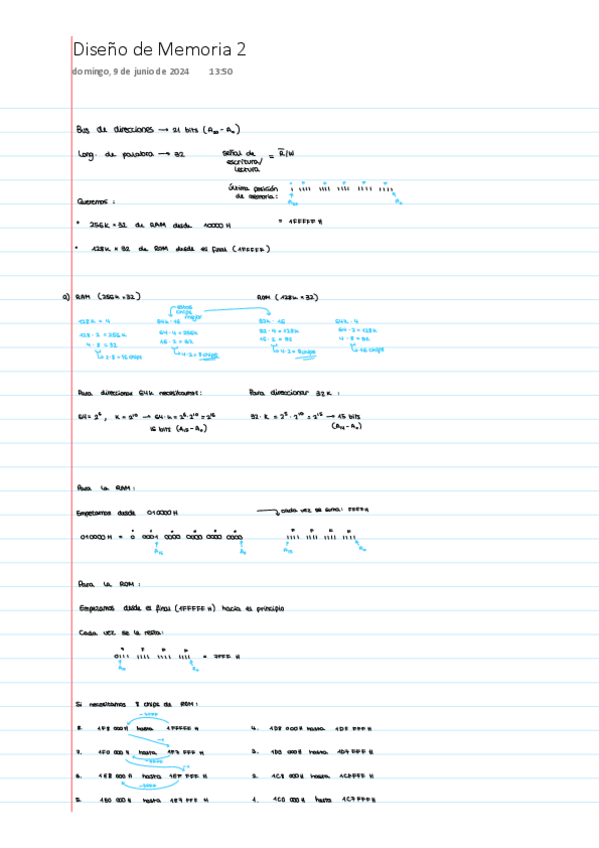 Diseño de Memoria 2
domingo, 9 de junio de 2024 13:50
Bus de direcciones → 21 bits (A₂₀-A₀)
Long. de palabra → 32 señal de escritura/lectura = R̅/W
Última posición de memoria:
A₂₀ A₀
Queremos:
= 1FFFFF H
• 256K × 32 de RAM desde 10000 H
• 128K × 32 de ROM desde el final (1FFFFF)
a) RAM (256K × 32) ROM (128K × 32)
estos chips mejor
128K × 4 64K · 16 32K · 16 64K · 4
128 · 2 = 256K 64 · 4 = 256K 32 · 4 = 128K 64 · 2 = 128K
4 · 8 = 32 16 · 2 = 32 16 · 2 = 32 4 · 8 = 32
2 · 8 = 16 chips 4 · 2 = 8 chips 4 · 2 = 8 chips 16 chips
Para direccionar 64K necesitamos: Para direccionar 32K:
64 = 2⁶, K = 2¹⁰ → 64 · K = 2⁶ · 2¹⁰ = 2¹⁶ 32 · K = 2⁵ · 2¹⁰ = 2¹⁵ → 15 bits
16 bits (A₁₅-A₀) (A₁₄-A₀)
Para la RAM:
Empezamos desde 010000 H cada vez se suma: FFFF H
F F F F
010000 H = 0 0001 0000 0000 0000 0000 1111 1111 1111 1111
A₁₆ A₀ A₁₅ A₀
Para la ROM:
Empezamos desde el final (1FFFFF H) hacia el principio
Cada vez se le resta:
7 F F F
0111 1111 1111 1111 = 7FFF H
A₀
Si necesitamos 8 chips de ROM:
-7FFF
8. 1F8 000 H hasta 1FFFFF H 4. 1D8 000 H hasta 1DF FFF H
7. 1F0 000 H hasta 1F7 FFF H 3. 1D0 000 H hasta 1D7 FFF H
-7FFF
6. 1E8 000 H hasta 1EF FFF H 2. 1C8 000 H hasta 1CFFFF H
-7FFF
5. 1E0 000 H hasta 1E7 FFF H 1. 1C0 000 H hasta 1C7FFF H